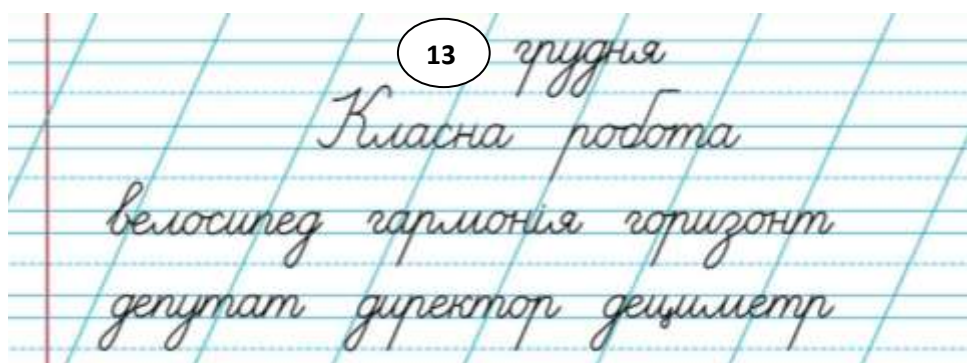 13 грудня
Класна робота
велосипед гармонія горизонт
депутат директор дециметр